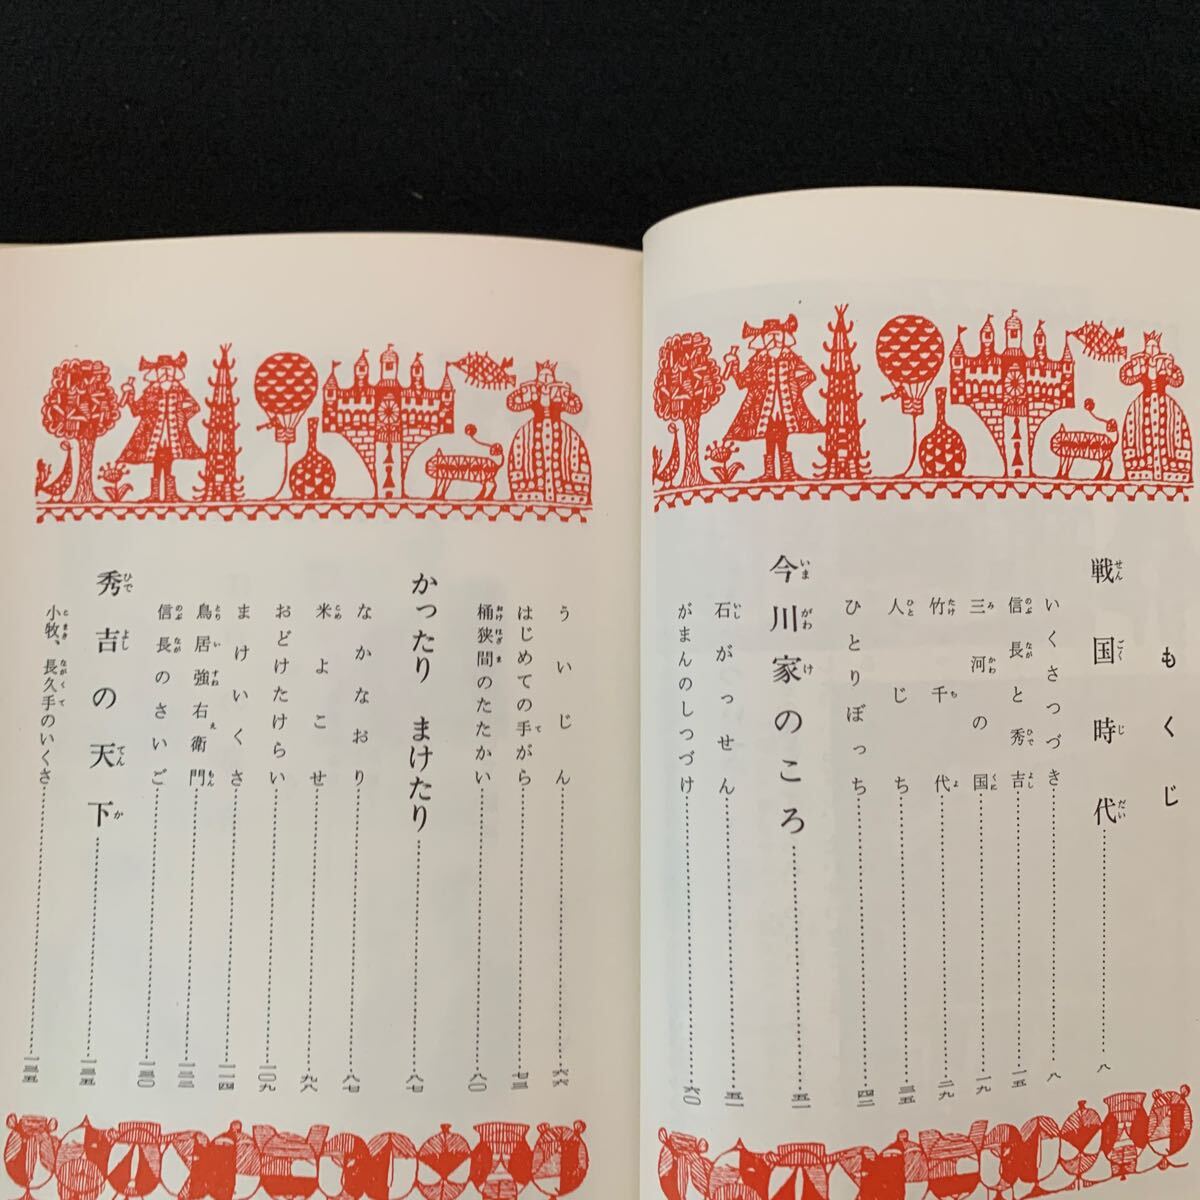 もくじ
戦国時代……八
いくさつづき……八
信長と秀吉……一五
三河の国……一九
竹千代……二九
人じち……三五
ひとりぼっち……四二
今川家のころ……五一
石がっせん……五一
がまんのしつづけ……六〇
ういじん……六六
はじめての手がら……七三
桶狭間のたたかい……八〇
かったり まけたり……八七
なかなおり……八七
米よこせ……九八
おどけたけらい……一〇九
まけいくさ……一一四
鳥居強右衛門……一二二
信長のさいご……一三〇
秀吉の天下……一三五
小牧、長久手のいくさ……一三五